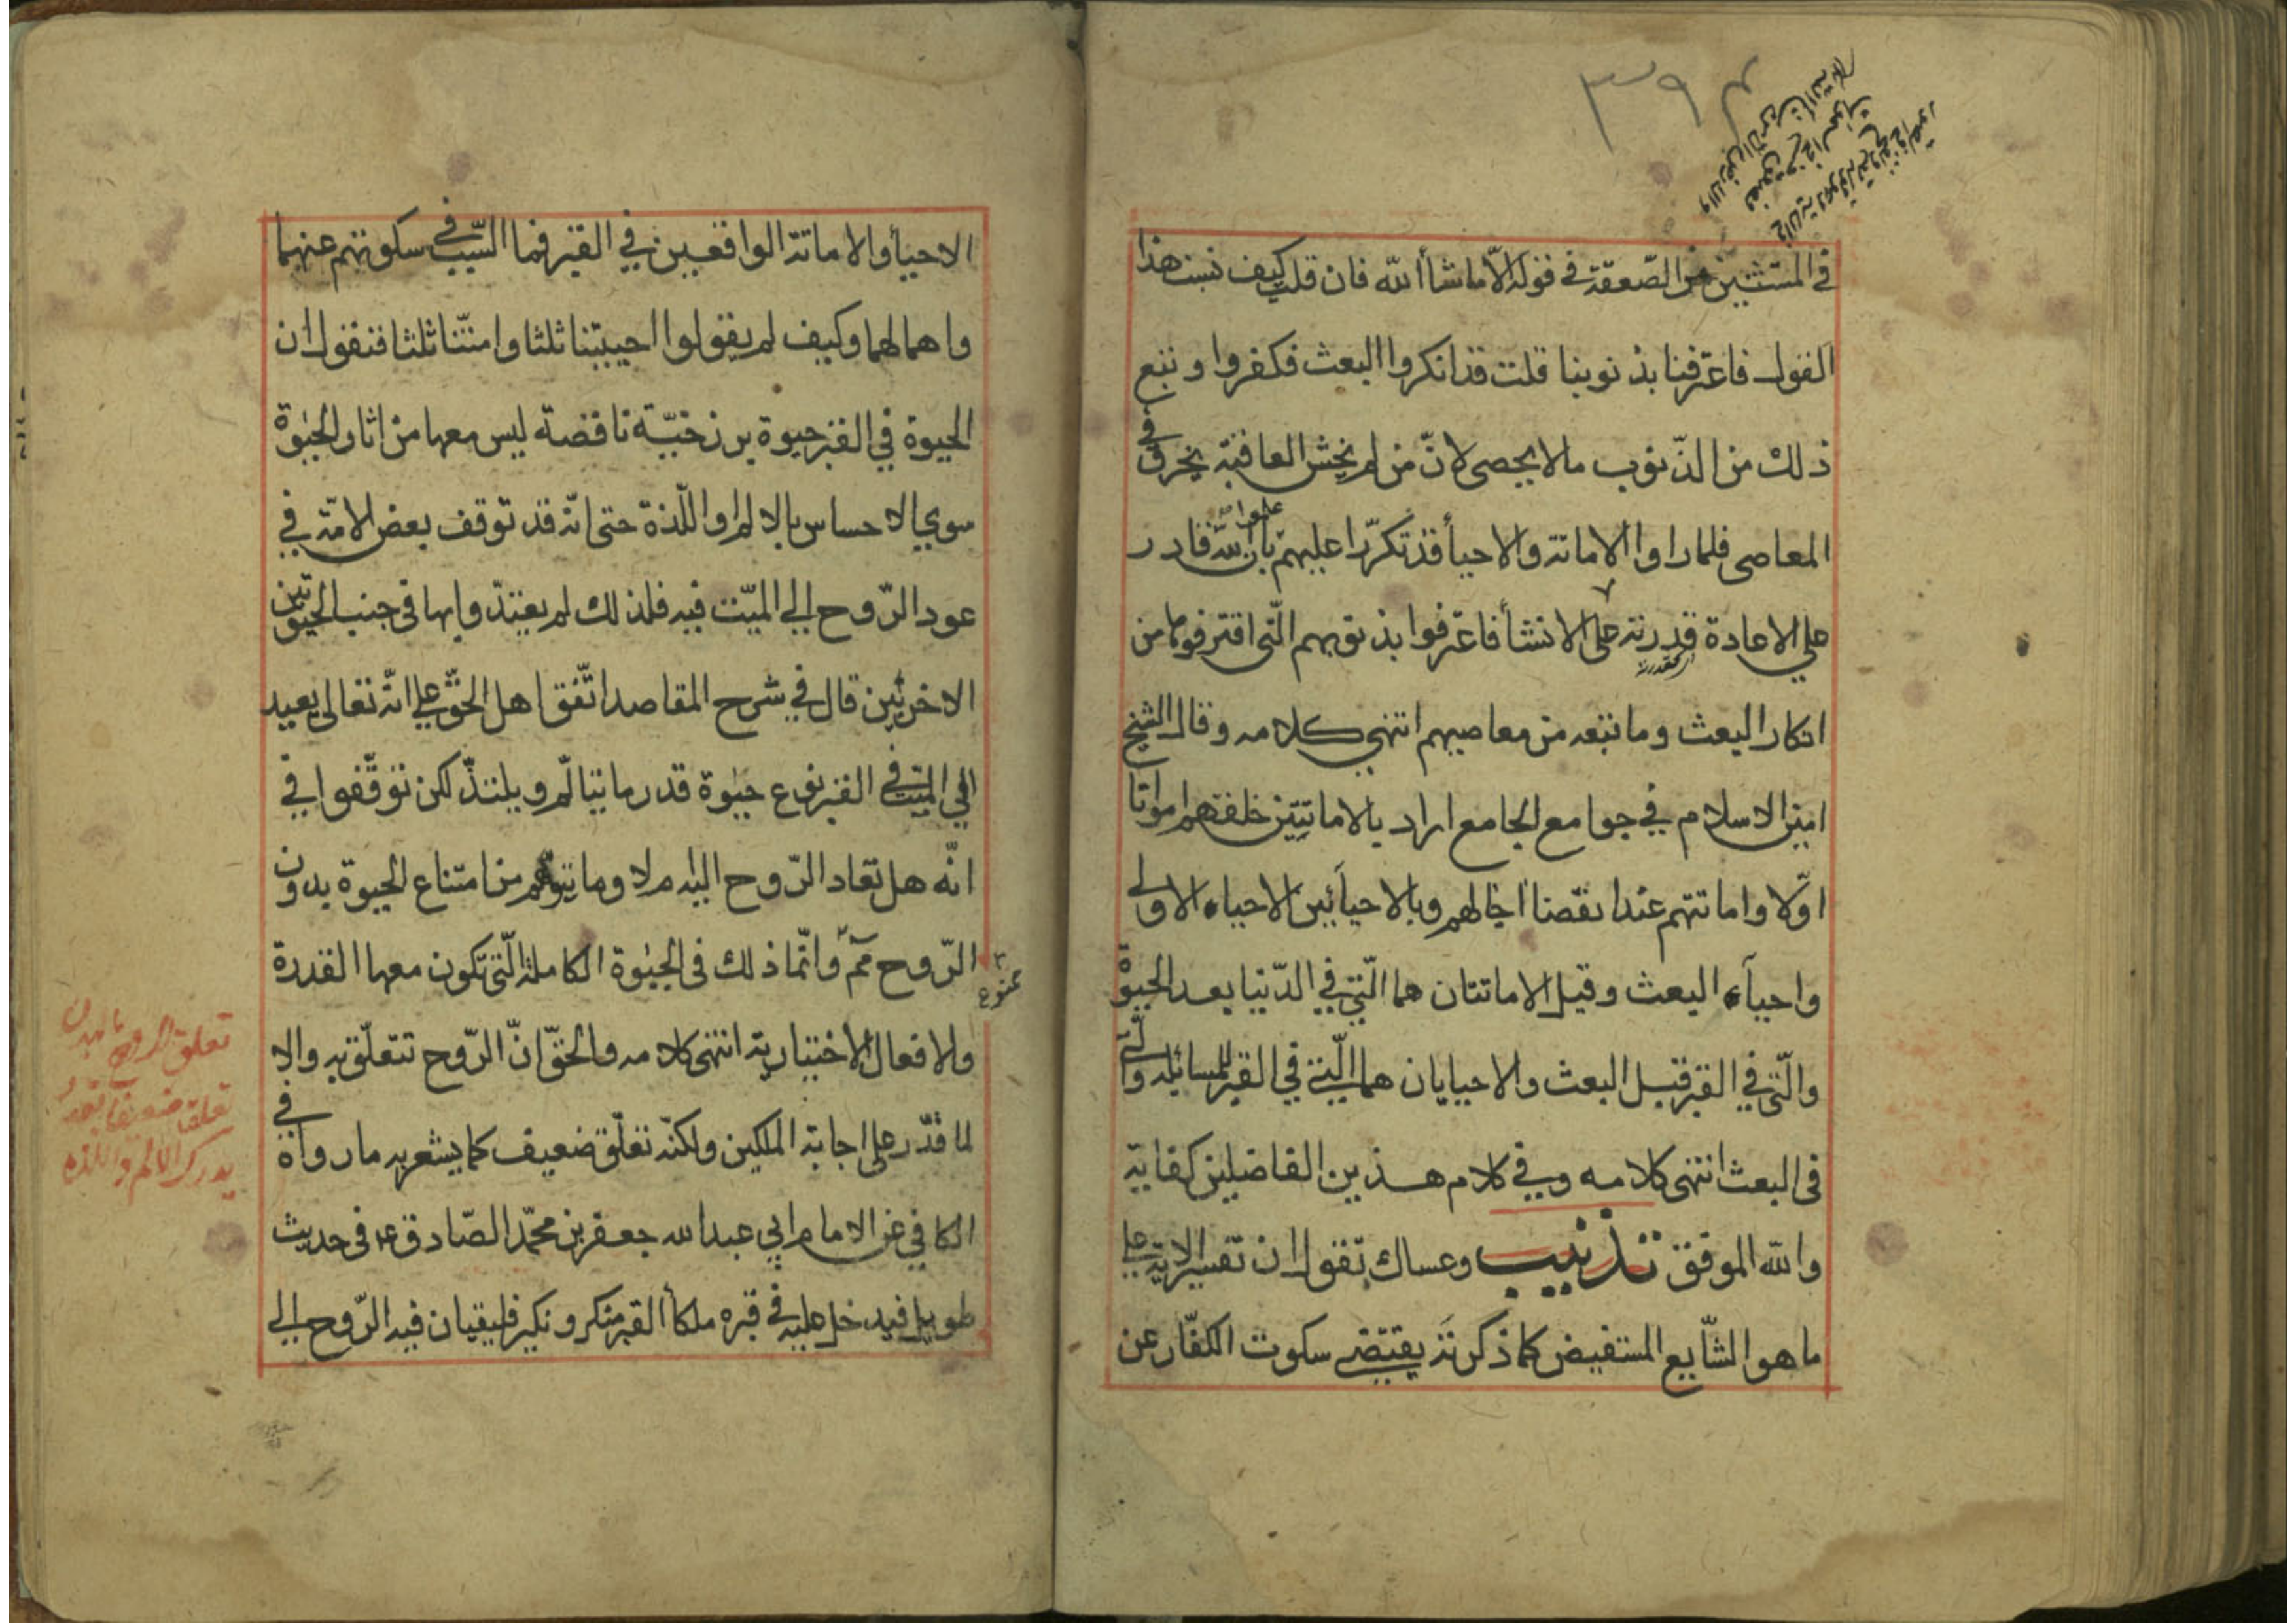 ٣٩٤
في المستثنين من الصّعقة في قوله الّا ما شاأ الله فان قلت كيف تسبب هذا
القول فاعترفنا بذنوبنا قلت قد انكروا البعث فكفروا و تبع
ذلك من الذّنوب ما لا يحصى لانّ من لم يخش العاقبة يخرق في
المعاصى فلما راوا الاماتة والاحيأ قد تكرّرا عليهم علموا بان الله قادر
على الاعادة قدرته على الانشأ فاعترفوا بذنوبهم الّتى اقترفوها من
كقدرته
انكار البعث وما تبعه من معاصيهم انتهى كلامه وقال الشيخ
امين الاسلام في جوامع الجامع اراد بالاماتتين خلقهم امواتا
اوّلا واماتتهم عند انقضا اجالهم وبالاحياَئين الاحياء الاولى
واحياَء البعث وقيل الاماتتان هما الّتي في الدّنيا بعد الحيوة
والّتى في القبر قبل البعث والاحيايان هما الّتي في القبر للمسائلة والّتى
فى البعث انتهى كلامه وفي كلام هذين الفاضلين كفاية
والله الموفق تذنيب وعساك تقول ان تفسير الاية على
ما هو الشّايع المستفيض كما ذكرته يقتضي سكوت الكفّار عن
الاحيأ والاماتة الواقعين في القبر فما السّبب في سكوتهم عنهما
واهمالهما وكيف لم يقولوا احييتنا ثلثا وامتّنا ثلثا فنقول ان
الحيوة في القبر حيوة برزخيّة ناقصة ليس معها من اثار الحيوة
سوي الاحساس بالالم او اللّذة حتى انّه قد توقف بعض الامّة في
عود الرّوح الي الميّت فيه فلذلك لم يعتدّوا بها فى جنب الحيوتين
الاخريين قال في شرح المقاصد اتّفق اهل الحقّ على انّه تعالى يعيد
الي الميّت في القبر نوع حيوة قدر ما يتالّم ويلتذّ لكن توقّفوا في
انّه هل تعاد الرّوح اليه ام لا وما يتوهّم من امتناع الحيوة بدون
الرّوح مَمّ وانّما ذلك فى الحيوة الكاملة الّتي تكون معها القدرة
ممنوع
والافعال الاختيارية انتهى كلامه والحقّ انّ الرّوح تتعلّق به والا
لما قدّر على اجابة الملكين ولكنّه تعلّق ضعيف كما يشعر به ما رواه في
الكافي عن الامام ابي عبد الله جعفر بن محمّد الصّادق ع فى حديث
طويل فيدخل عليه في قبره ملكأ القبر منكر ونكير فليقيان فيه الرّوح الي
تعلق الروح بالبدن
تعلقا ضعيفا بقدر
يدرك الالم واللذه